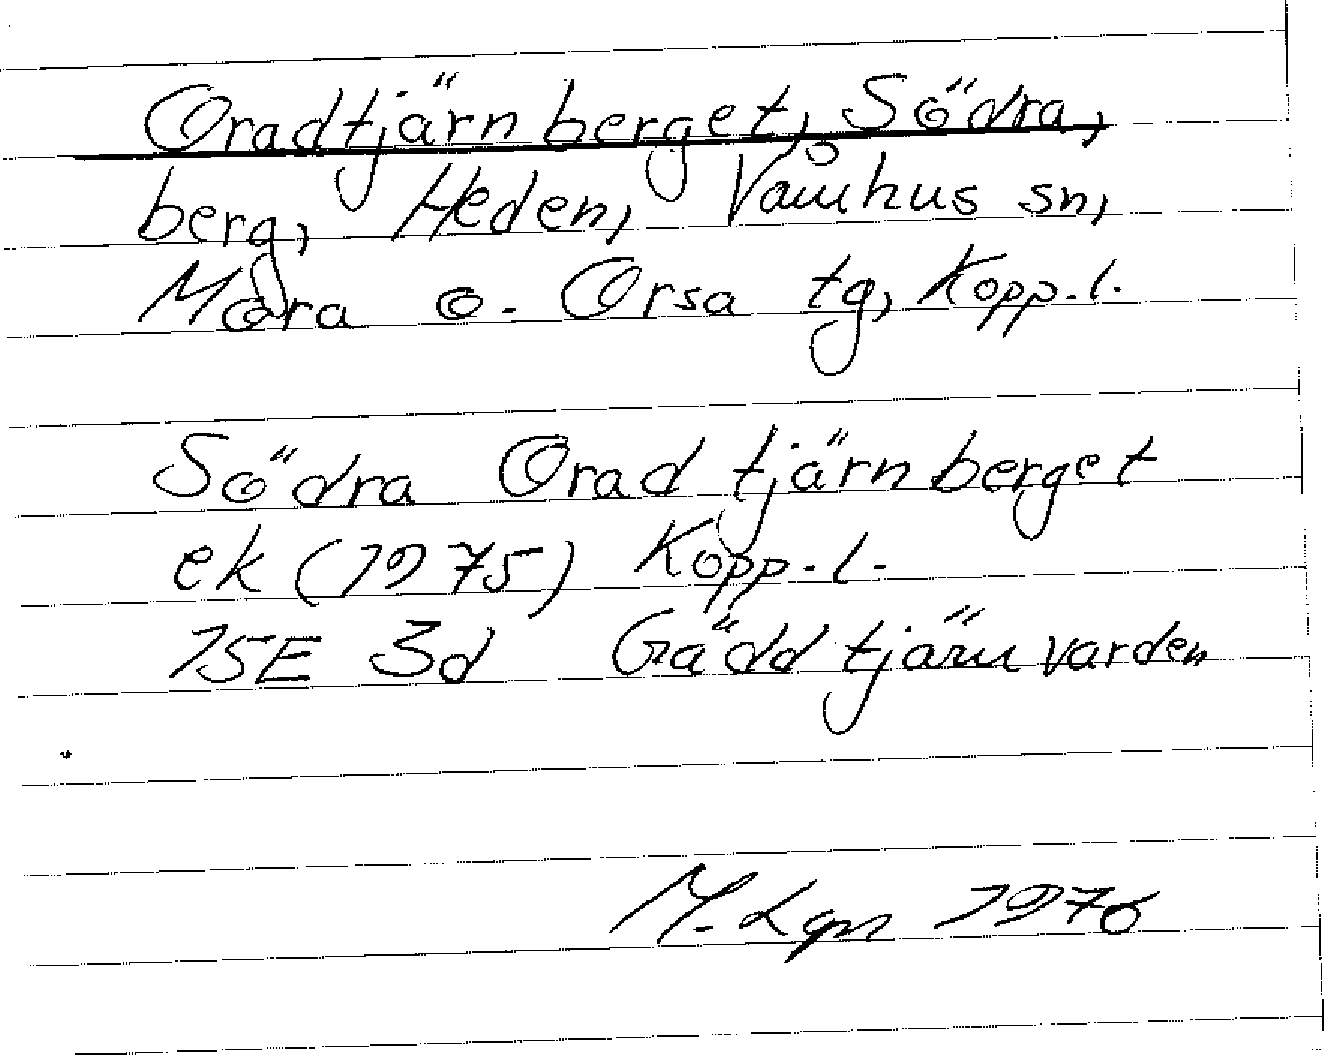 Oradtjärnberget, Södra,
berg, Heden, Våmhus sn,
Mora o. Orsa tg, Kopp. l.
Södra Oradtjärnberget
ek (1975) Kopp. l.
15E 3d Gäddtjärnvarden
M. Lgn 1976